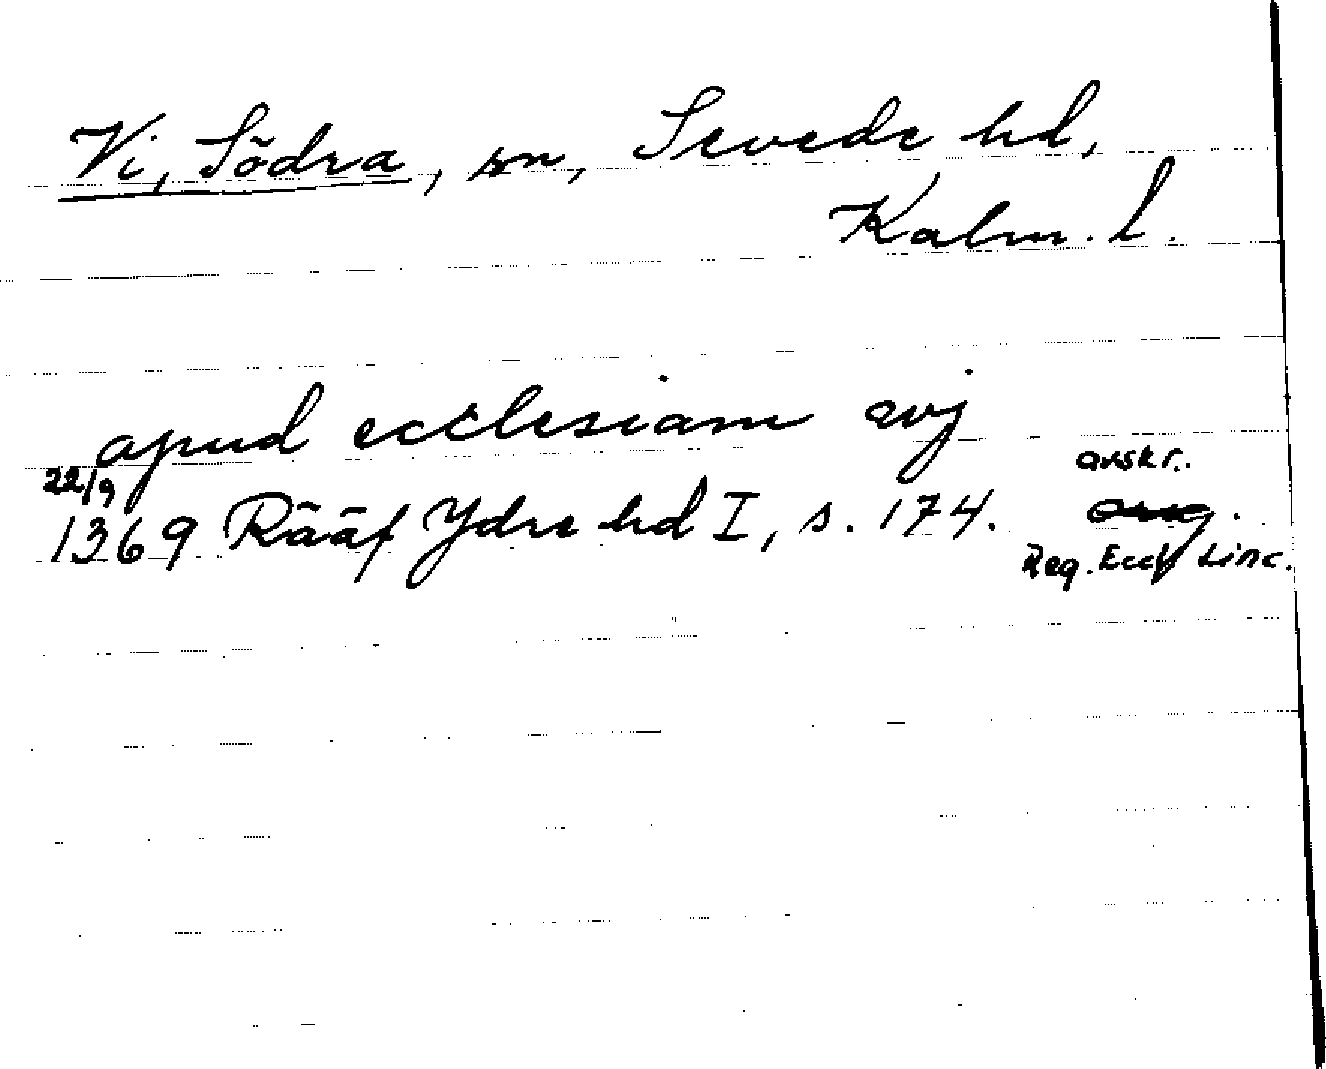 Vi, Södra, sn, Sevede hd,
Kalm. l.
apud ecclesiam wj
22/9 avskr.
1369 Rääf Ydre hd I, s. 174.
Reg. Eccl. Linc.